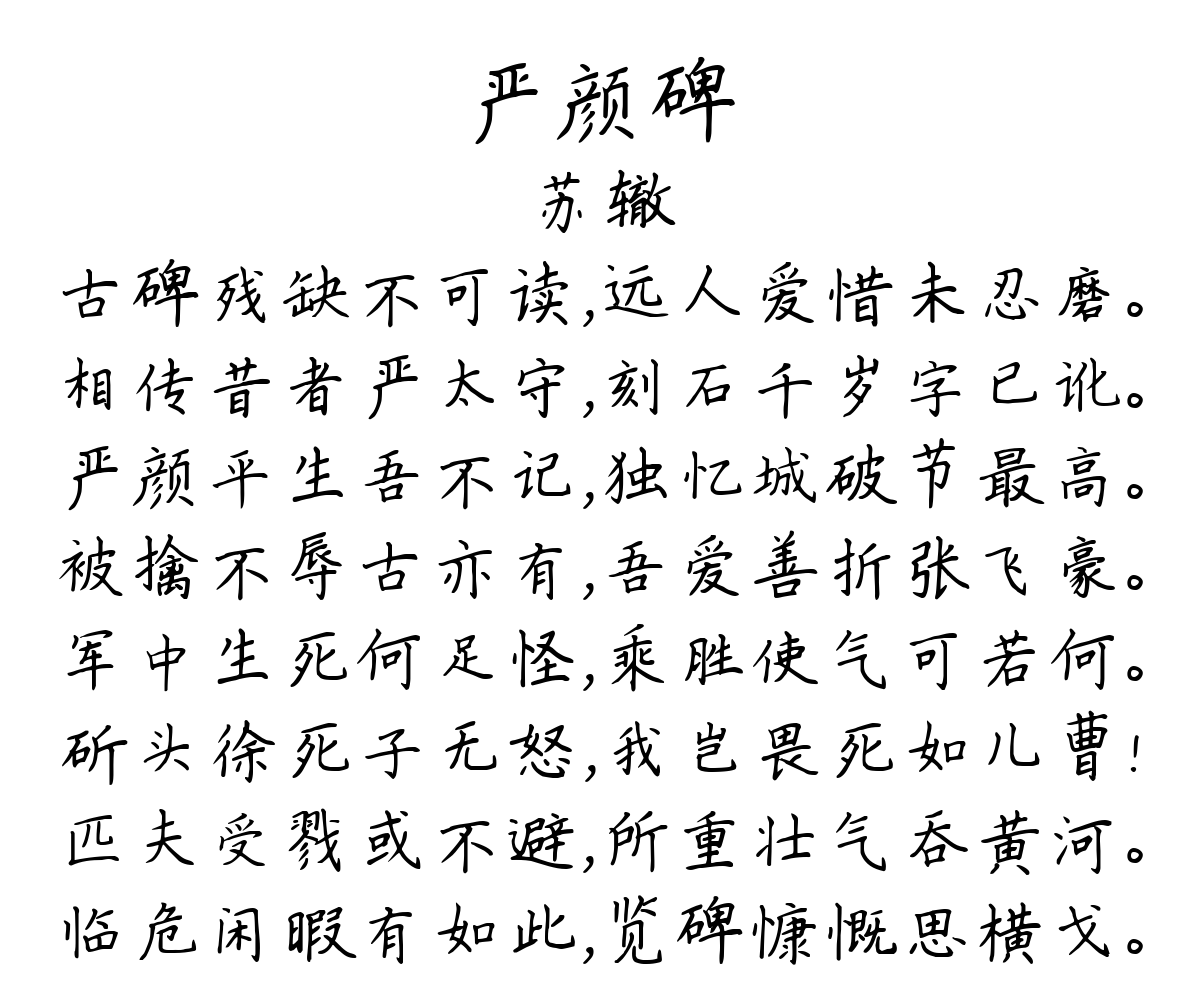 严颜碑
苏辙
古碑残缺不可读,远人爱惜未忍磨。
相传昔者严太守,刻石千岁字已讹。
严颜平生吾不记,独忆城破节最高。
被擒不辱古亦有,吾爱善折张飞豪。
军中生死何足怪,乘胜使气可若何。
斫头徐死子无怒,我岂畏死如儿曹!
匹夫受戮或不避,所重壮气吞黄河。
临危闲暇有如此,览碑慷慨思横戈。